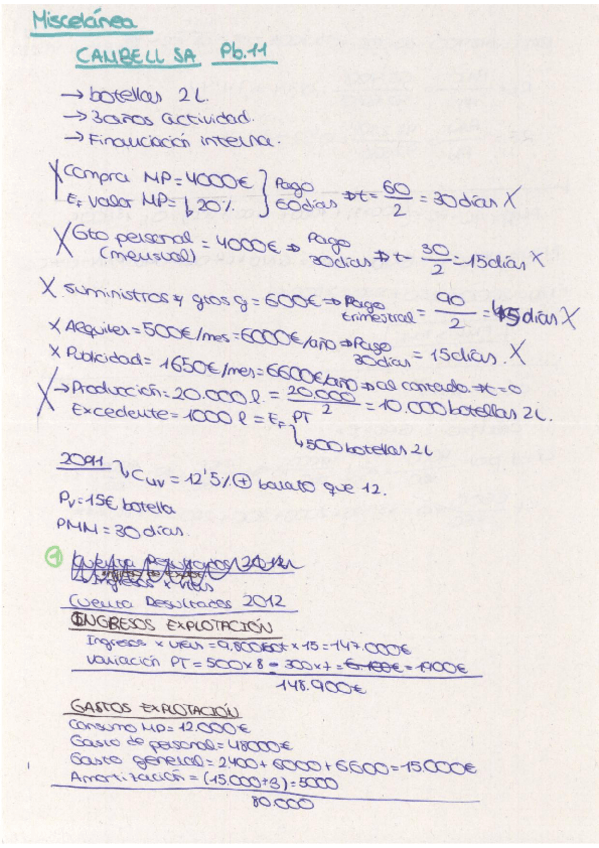 Miscelánea
CANBELL SA Pb.11
→ botellas 2L.
→ 3 años actividad.
→ Financiación interna.
X Compra MP = 4000€ } Pago 60 días → t = 60/2 = 30 días X
Ef valor MP = ↓ 20%
X Gto personal (mensual) = 4000€ → Pago 30 días → t = 30/2 = 15 días X
X suministros y gtos g = 600€ → Pago trimestral = 90/2 = 45 días X
X Alquiler = 500€/mes = 6000€/año → Pago 30 días = 15 días. X
X Publicidad = 1650€/mes = 6600€/año → al contado → t = 0
X → Producción = 20.000 l. = 20.000/2 = 10.000 botellas 2L.
Excedente = 1000 l = Ef PT
↳ 500 botellas 2L
2011 ↳ Cuv = 12'5% ⊕ barato que 12.
Pv = 15€ botella
PMM = 30 días.
①
Ingresos x vtas
Cuenta Resultados 2012
INGRESOS EXPLOTACIÓN
Ingresos x vtas = 9.800 x 15 = 147.000€
Variación PT = 500 x 8 - 300 x 7 = 1900€
148.900€
GASTOS EXPLOTACIÓN
Consumo MP = 12.000€
Gasto de personal = 48000€
Gasto general = 2400 + 6000 + 6600 = 15.000€
Amortización = (15.000 ÷ 3) = 5000
80.000